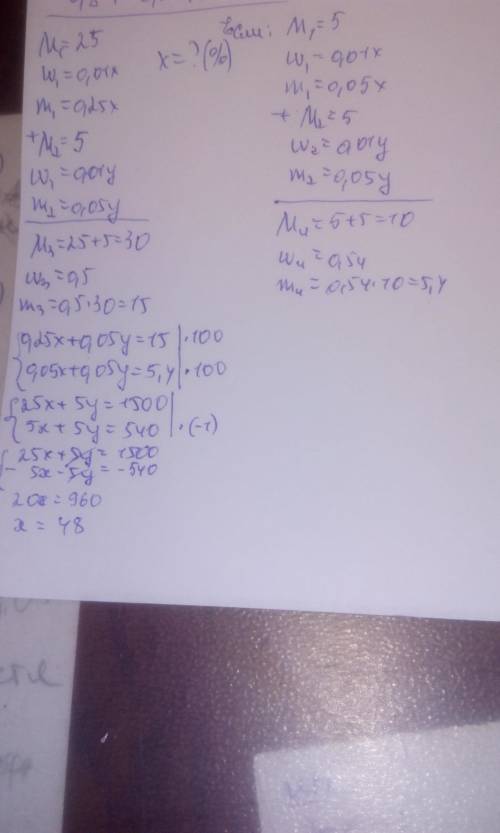 M₁=25
w₁=0,01x
m₁=0,25x
+M₂=5
w₁=0,01y
m₂=0,05y
M₃=25+5=30
w₃=0,5
m₃=0,5·30=15
x=?(%)
Если: M₁=5
w₁=0,01x
m₁=0,05x
+M₂=5
w₂=0,01y
m₂=0,05y
M₄=5+5=10
w₄=0,54
m₄=0,54·10=5,4
{0,25x+0,05y=15|·100
{0,05x+0,05y=5,4|·100
{25x+5y=1500|
{5x+5y=540|·(-1)
25x+5y=1500
-5x-5y=-540
20x=960
x=48